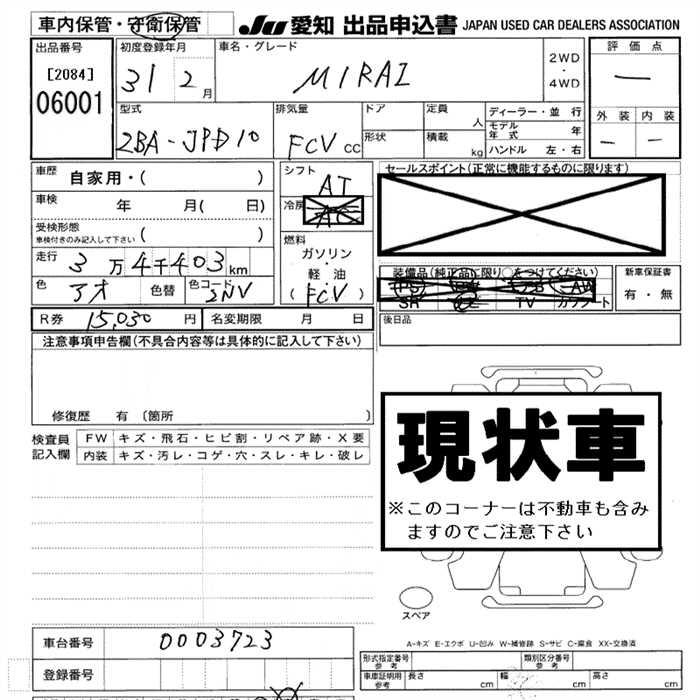 車内保管・守衛保管
JU 愛知 出品申込書 JAPAN USED CAR DEALERS ASSOCIATION
出品番号
[2084]
06001
初度登録年月
31 2月
車名・グレード
MIRAI
2WD
・
4WD
評価点
—
外装 内装
— —
型式
ZBA-JPD10
排気量
FCV cc
ドア
形状
定員 人
積載 kg
ディーラー・並行
モデル年式 年
ハンドル 左・右
車歴 自家用・( )
車検 年 月( 日)
受検形態
車検付きのみ記入して下さい ( )
走行 3万4千403km
色 アオ 色替 色コード
シフト
AT
冷房
AC
燃料
ガソリン
・
軽油
(FCV)
セールスポイント(正常に機能するものに限ります)
装備品(純正品に限り○をつけてください)
PS AW
SR TV カワシート
新車保証書
有・無
R券 15,030円 名変期限 月 日
後日品
注意事項申告欄(不具合内容等は具体的に記入して下さい)
修復歴 有〔箇所 〕
検査員記入欄
FW キズ・飛石・ヒビ割・リペア跡・X要
内装 キズ・汚レ・コゲ・穴・スレ・キレ・破レ
現状車
※このコーナーは不動車も含み
ますのでご注意下さい
スペア
A-キズ E-エクボ U-凹み W-補修跡 S-サビ C-腐食 XX-交換済
車台番号 0003723
登録番号
形式指定番号 参考
類別区分番号 参考
車庫証明用 参考 長さ cm 幅 cm 高さ cm